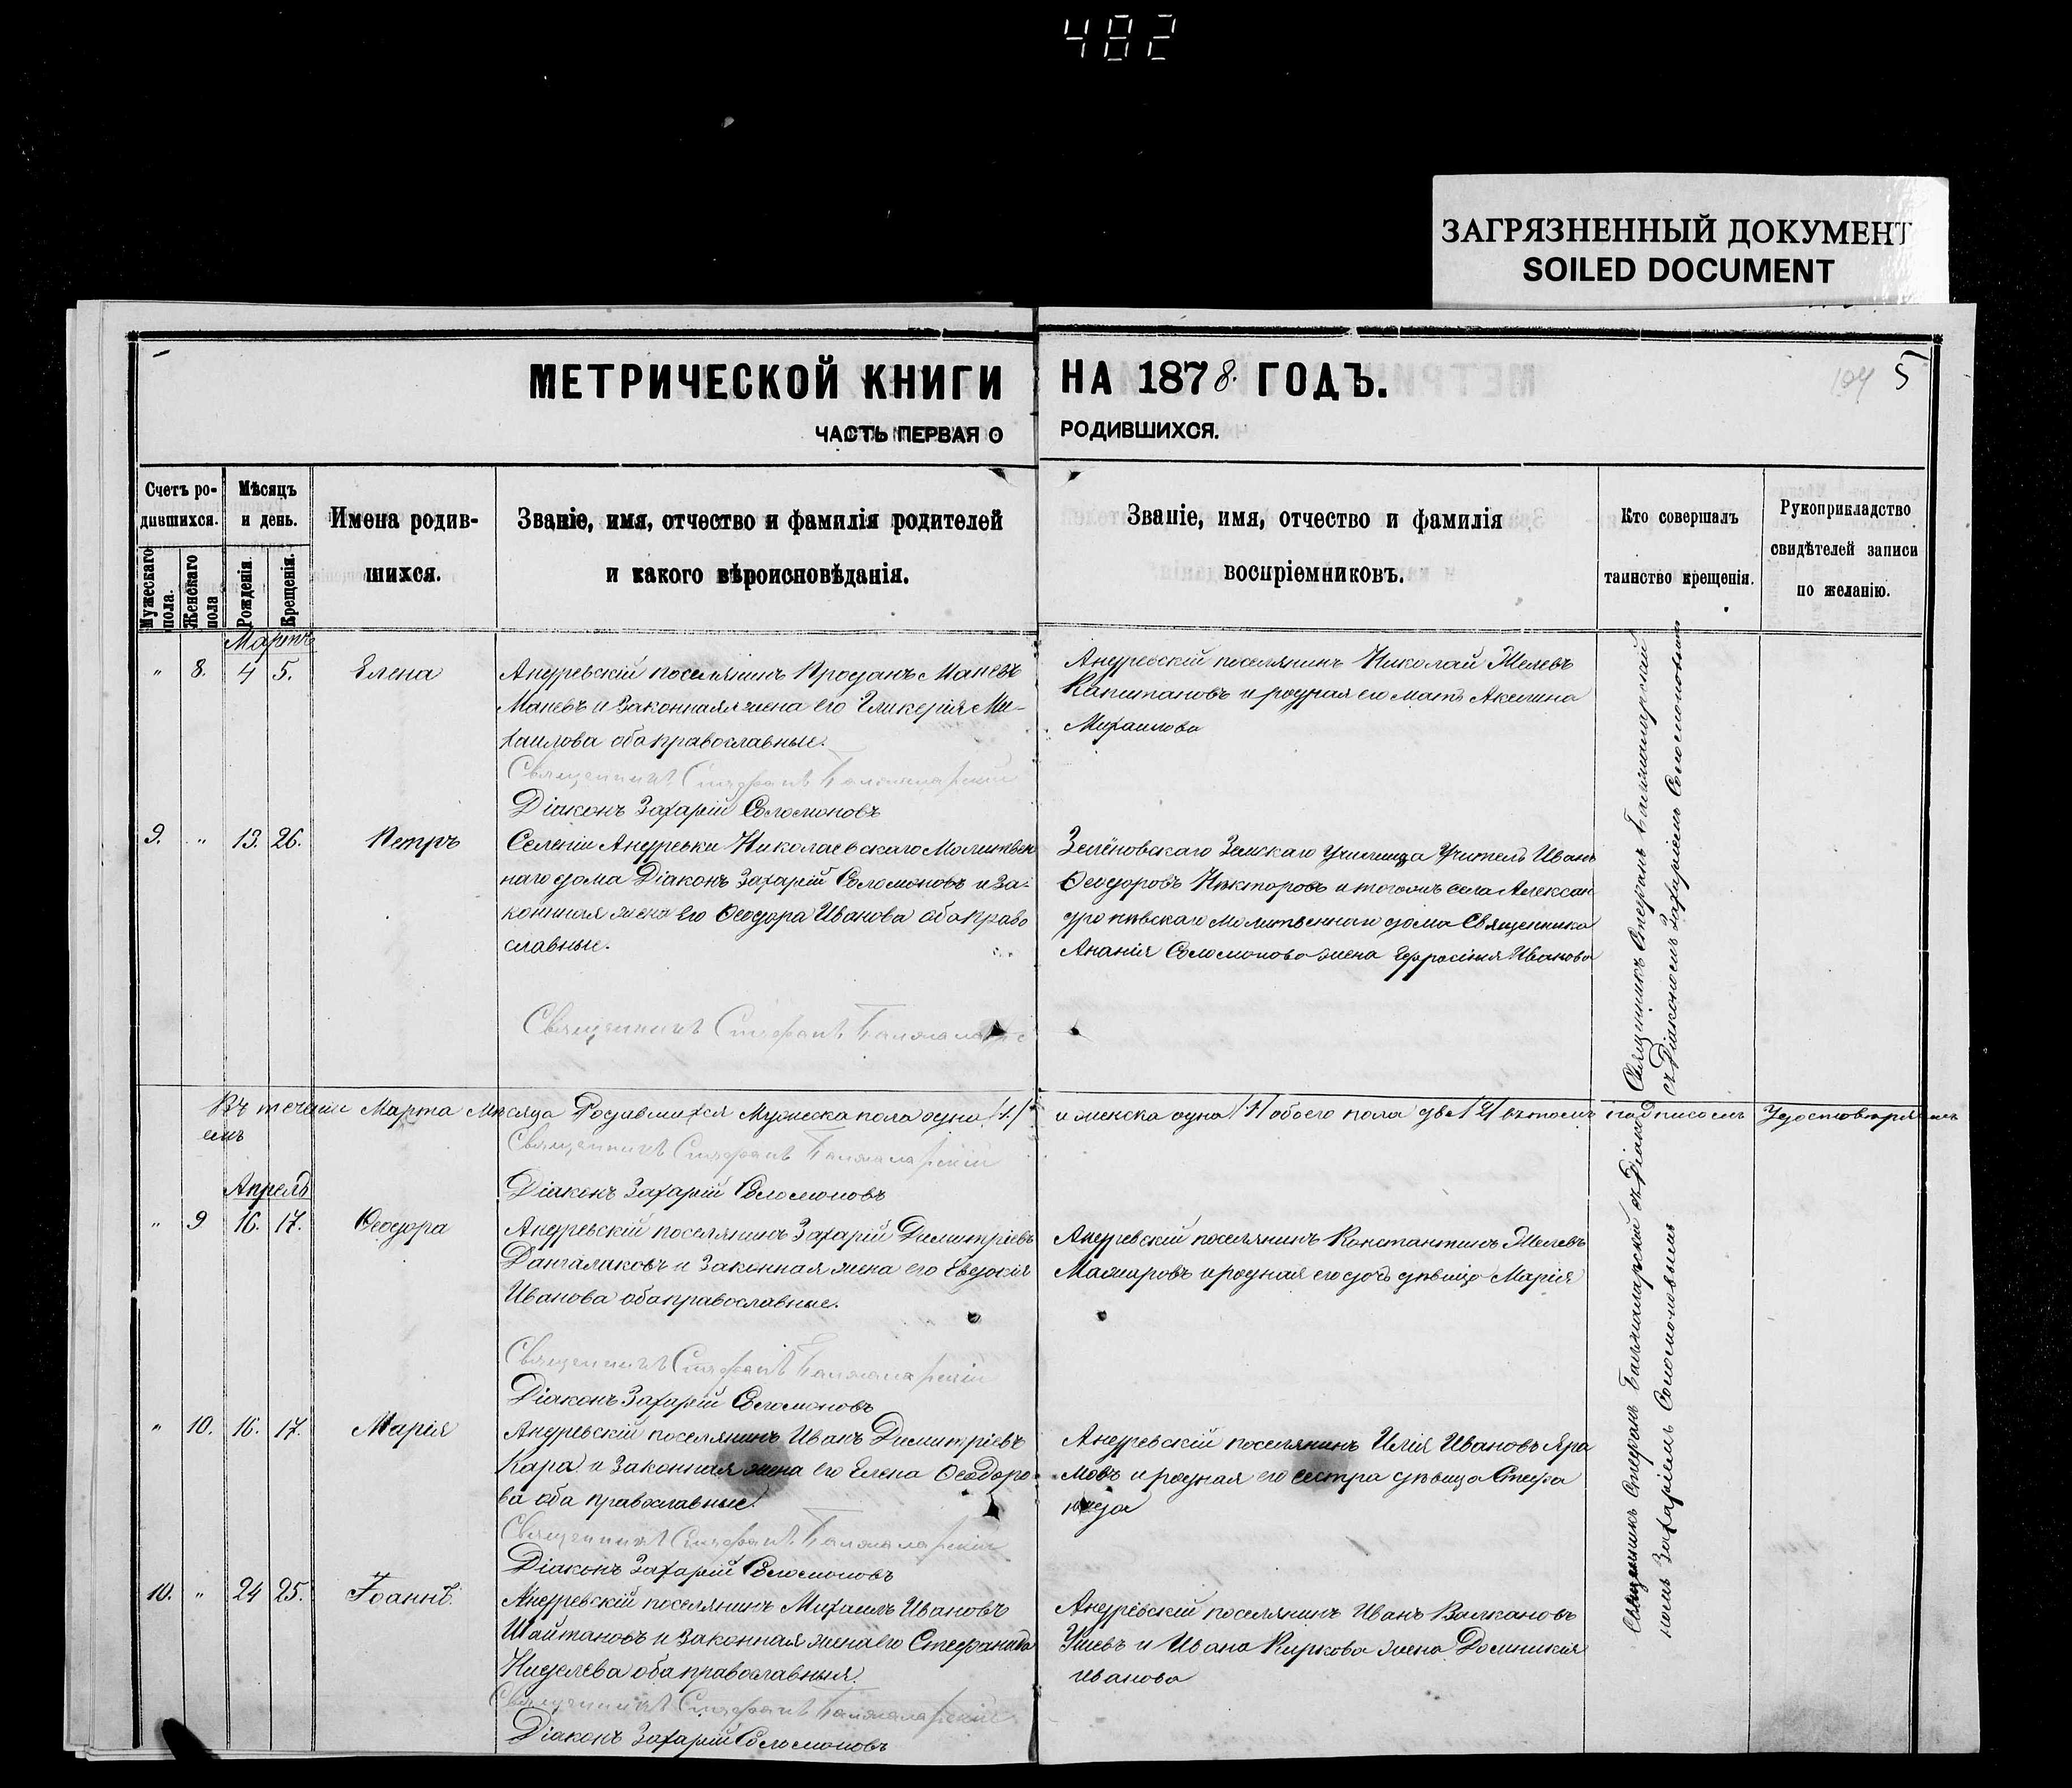 482
ЗАГРЯЗНЕННЫЙ ДОКУМЕНТ
SOILED DOCUMENT
МЕТРИЧЕСКОЙ КНИГИ НА 1878. ГОДЪ.
104 5
ЧАСТЬ ПЕРВАЯ О РОДИВШИХСЯ.
Счетъ ро-
дившихся.
Мужескаго пола.
Женскаго пола
Мѣсяцъ
и день.
Рожденія.
Крещенія.
Имена родив-
шихся.
Званіе, имя, отчество и фамилія родителей
и какого вѣроисповѣданія.
Званіе, имя, отчество и фамилія
воспріемниковъ.
Кто совершалъ
таинство крещенія.
Рукоприкладство
свидѣтелей записи
по желанію.
Мартъ
" 8. 4 5. Елена
Андревскій поселянинъ Проданъ Маневъ
Маневъ и Законная жена его Гликерія Ми-
хаилова оба православные.
Священникъ Стефанъ
Діаконъ Захарій Соломоновъ
Андревскій поселянинъ Николай Желевъ
Капитановъ и родная его мать Акелина
Михаилова
9. " 13. 26. Петръ
Селенія Андревки Николаевскаго Молитвен
наго дома Діаконъ Захарій Соломоновъ и За-
конная жена его Ѳеодора Иванова оба право
славные.
Священникъ Стефанъ
Зелёновскаго Земскаго Училища Учитель Иванъ
Ѳеодоровъ Нѣкторовъ и тогожъ села Алексан
дроневскаго Молитвеннаго дома Священника
Ананія Соломонова жена Ефросинія Иванова
Въ теченіи Марта Мѣсяца Родившихся Мужеска пола одно /1/ и женска одна /1/ обоего пола два /2/ въ томъ подписомъ Удостовѣряемъ
Священникъ Стефанъ
Діаконъ Захарій Соломоновъ
Апрель
" 9 16. 17. Ѳеодора
Андревскій поселянинъ Захарій Димитріевъ
Дангалаковъ и Законная жена его Евдокія
Иванова оба православные.
Священникъ Стефанъ
Діаконъ Захарій Соломоновъ
Андревскій поселянинъ Константинъ Желевъ
Мажаровъ и родная его дочь дѣвица Марія
" 10. 16. 17. Марія
Андревскій поселянинъ Иванъ Димитріевъ
Кара и Законная жена его Елена Ѳеодоро-
ва оба православные.
Священникъ Стефанъ
Діаконъ Захарій Соломоновъ
Андревскій поселянинъ Илія Ивановъ Яра
мовъ и родная его сестра дѣвица Стефа
нида
10. " 24 25. Іоаннъ.
Андревскій поселянинъ Михаилъ Ивановъ
Шайтановъ и Законная жена его Стефанида
Ниделева оба православныя.
Священникъ Стефанъ
Діаконъ Захарій Соломоновъ
Андревскій поселянинъ Иванъ Валкановъ
и Ивана Киркова жена Домникия
Иванова
Священникъ Стефанъ
съ Діакономъ Захаріемъ Соломоновымъ
Священникъ Стефанъ съ Діако
номъ Захаріемъ Соломоновымъ